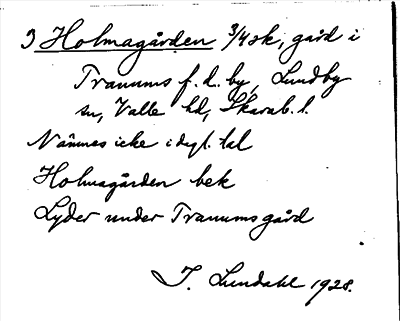 3 Holmagården 3/4 sk, gård i
Tranums f. d. by, Lundby
sn, Valle hd, Skarab. l.
Nämnes icke i dagl. tal
Holmagården bek
Lyder under Tranumsgård
J. Lundahl 1928.